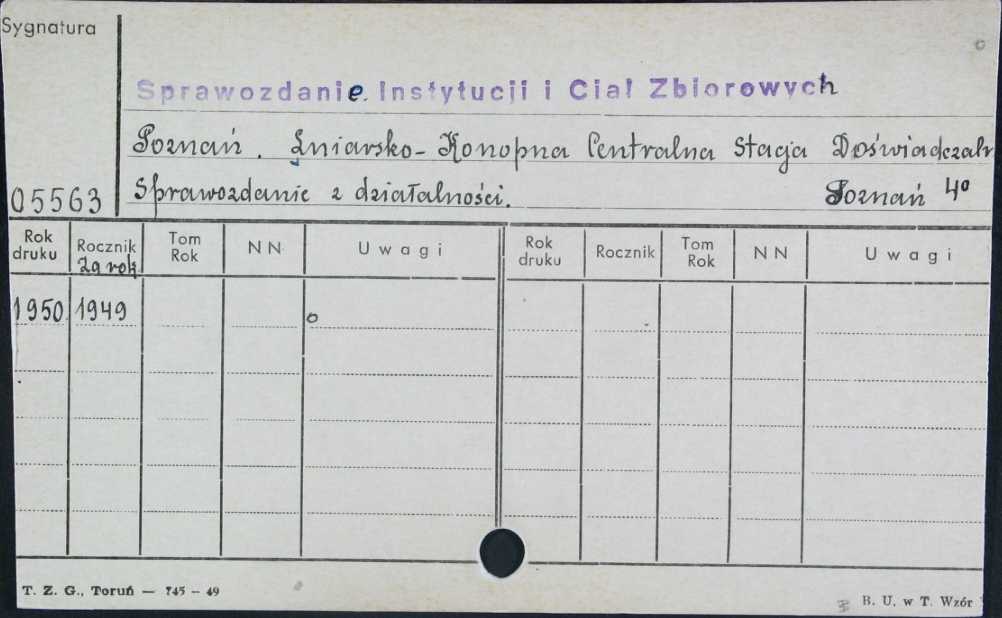 Sygnatura
Sprawozdanie. Instytucji i Ciał Zbiorowych
Poznań. Lniarsko-Konopna Centralna Stacja Doświadczaln
05563 Sprawozdanie z działalności. Poznań 4°
Rok druku Rocznik Za rok Tom Rok N N U w a g i Rok druku Rocznik Tom Rok N N U w a g i
1950 1949
T. Z. G., Toruń — 745 - 49 B. U. w T. Wzór